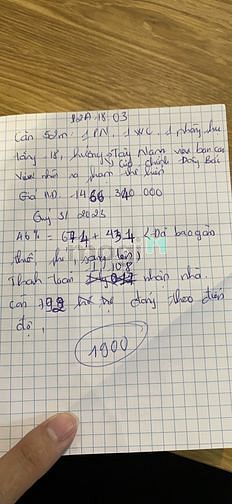 12A 18.03
Căn 50m² 1PN, 1WC, 1 phòng khu
tầng 18, hướng Tây Nam view ban công
cửa chính Đông Bắc
View nhìn ra
Giá HĐ. 1466 340 000
Quý 3/2023
46% = 674 + 434 (Đã bao gồm
thuế phí, sang tên)
Thanh toán 1108 nhận nhà.
Còn 792 đóng theo tiến
độ.
1900